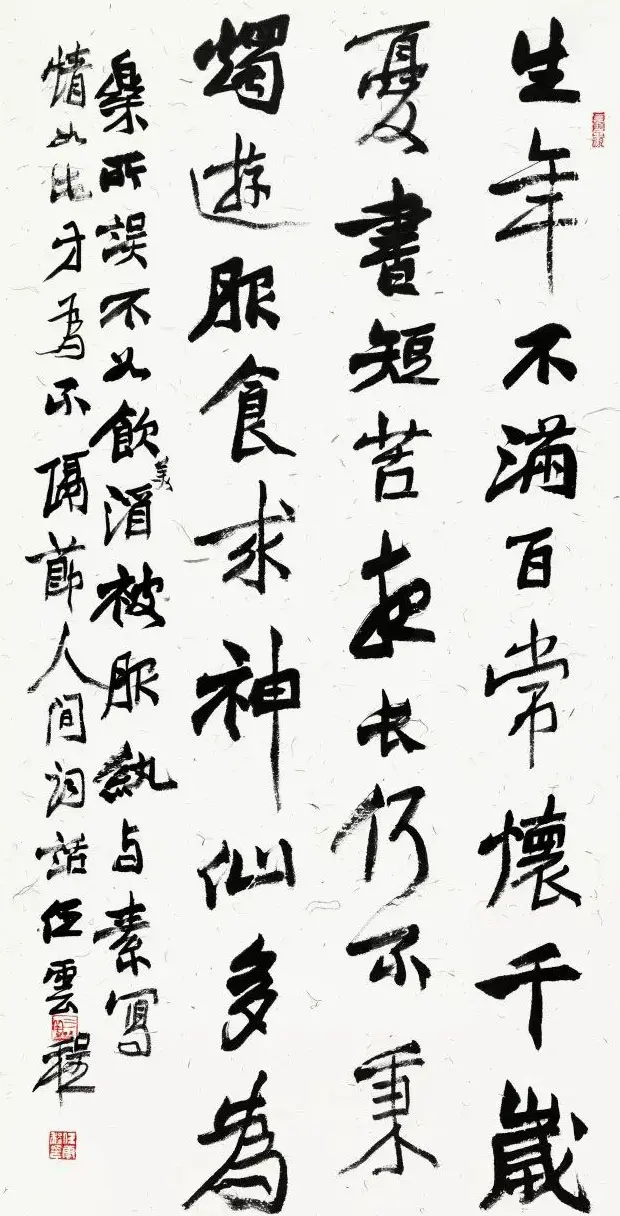 生年不滿百常懷千歲
憂書短苦夜長何不秉
燭遊服食求神仙多為
樂所誤不如飲美酒被服紈与素寫
情如此方為不隔節人間詞話任雲程